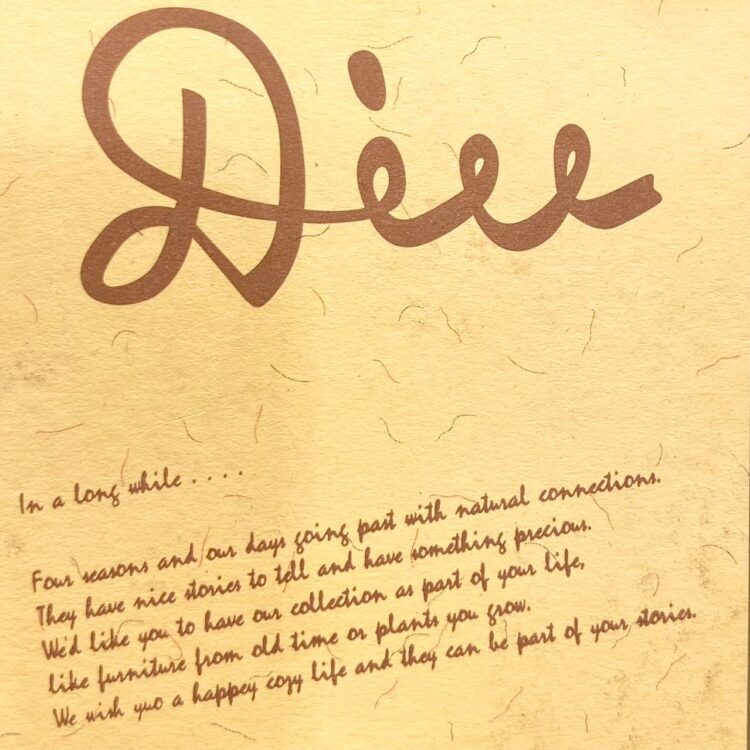 In a long while . . . .
Four seasons and our days going past with natural connections.
They have nice stories to tell and have something precious.
We'd like you to have our collection as part of your life,
like furniture from old time or plants you grow.
We wish yuo a happey cozy life and they can be part of your stories.